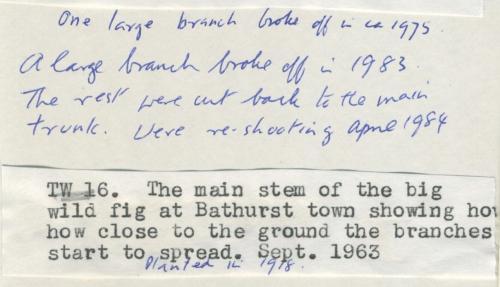 One large branch broke off in ca 1975.
A large branch broke off in 1983.
The rest were cut back to the main
trunk. Were re-shooting April 1984
TW 16. The main stem of the big
wild fig at Bathurst town showing how
how close to the ground the branches
start to spread. Sept. 1963
Planted in 1918.